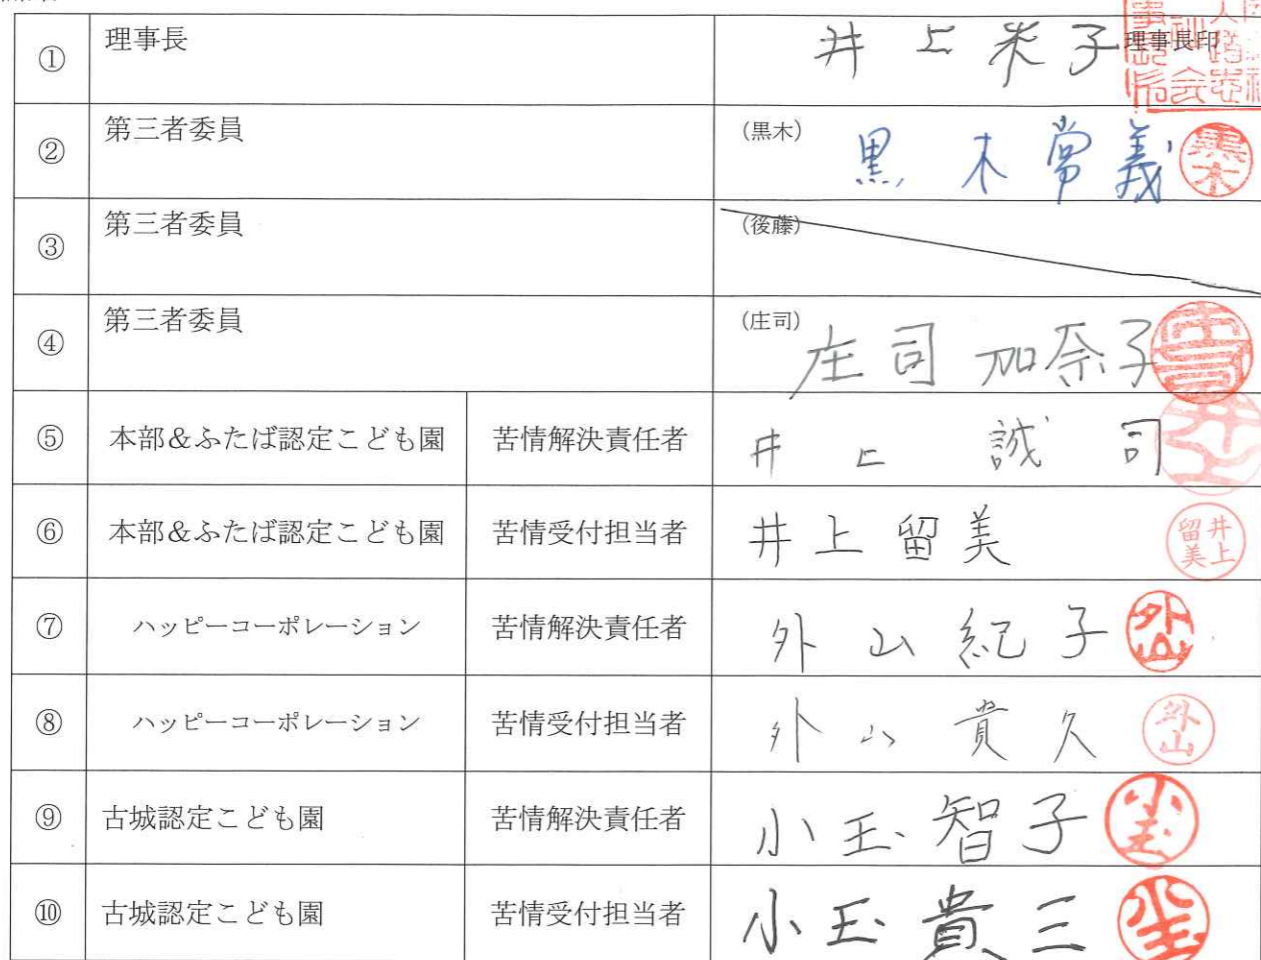 ① 理事長 井上米子 理事長印
② 第三者委員 (黒木) 黒木常義 黒木
③ 第三者委員 (後藤)
④ 第三者委員 (庄司) 庄司加奈子
⑤ 本部&ふたば認定こども園 苦情解決責任者 井上誠司 井上
⑥ 本部&ふたば認定こども園 苦情受付担当者 井上留美 井上留美
⑦ ハッピーコーポレーション 苦情解決責任者 外山紀子 外山
⑧ ハッピーコーポレーション 苦情受付担当者 外山貴久 外山
⑨ 古城認定こども園 苦情解決責任者 小玉智子 小玉
⑩ 古城認定こども園 苦情受付担当者 小玉貴三 小玉